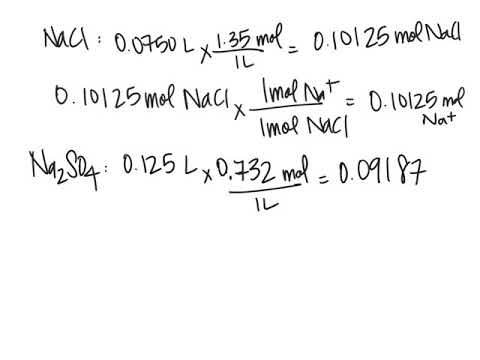 NaCl: 0.0750 L x 1.35 mol / 1L = 0.10125 mol NaCl
0.10125 mol NaCl x 1 mol Na+ / 1 mol NaCl = 0.10125 mol Na+
Na2SO4: 0.125 L x 0.732 mol / 1L = 0.09187